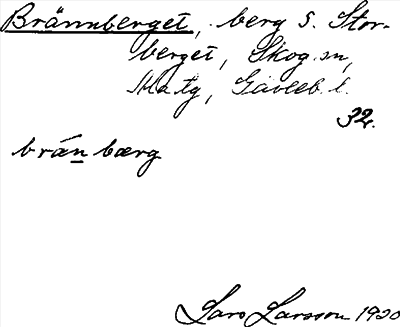 Brännberget, berg S. Stor-
berget, Skog sn,
Ala tg, Gävleb. l.
32.
brán bærg
Lars Larsson 1920